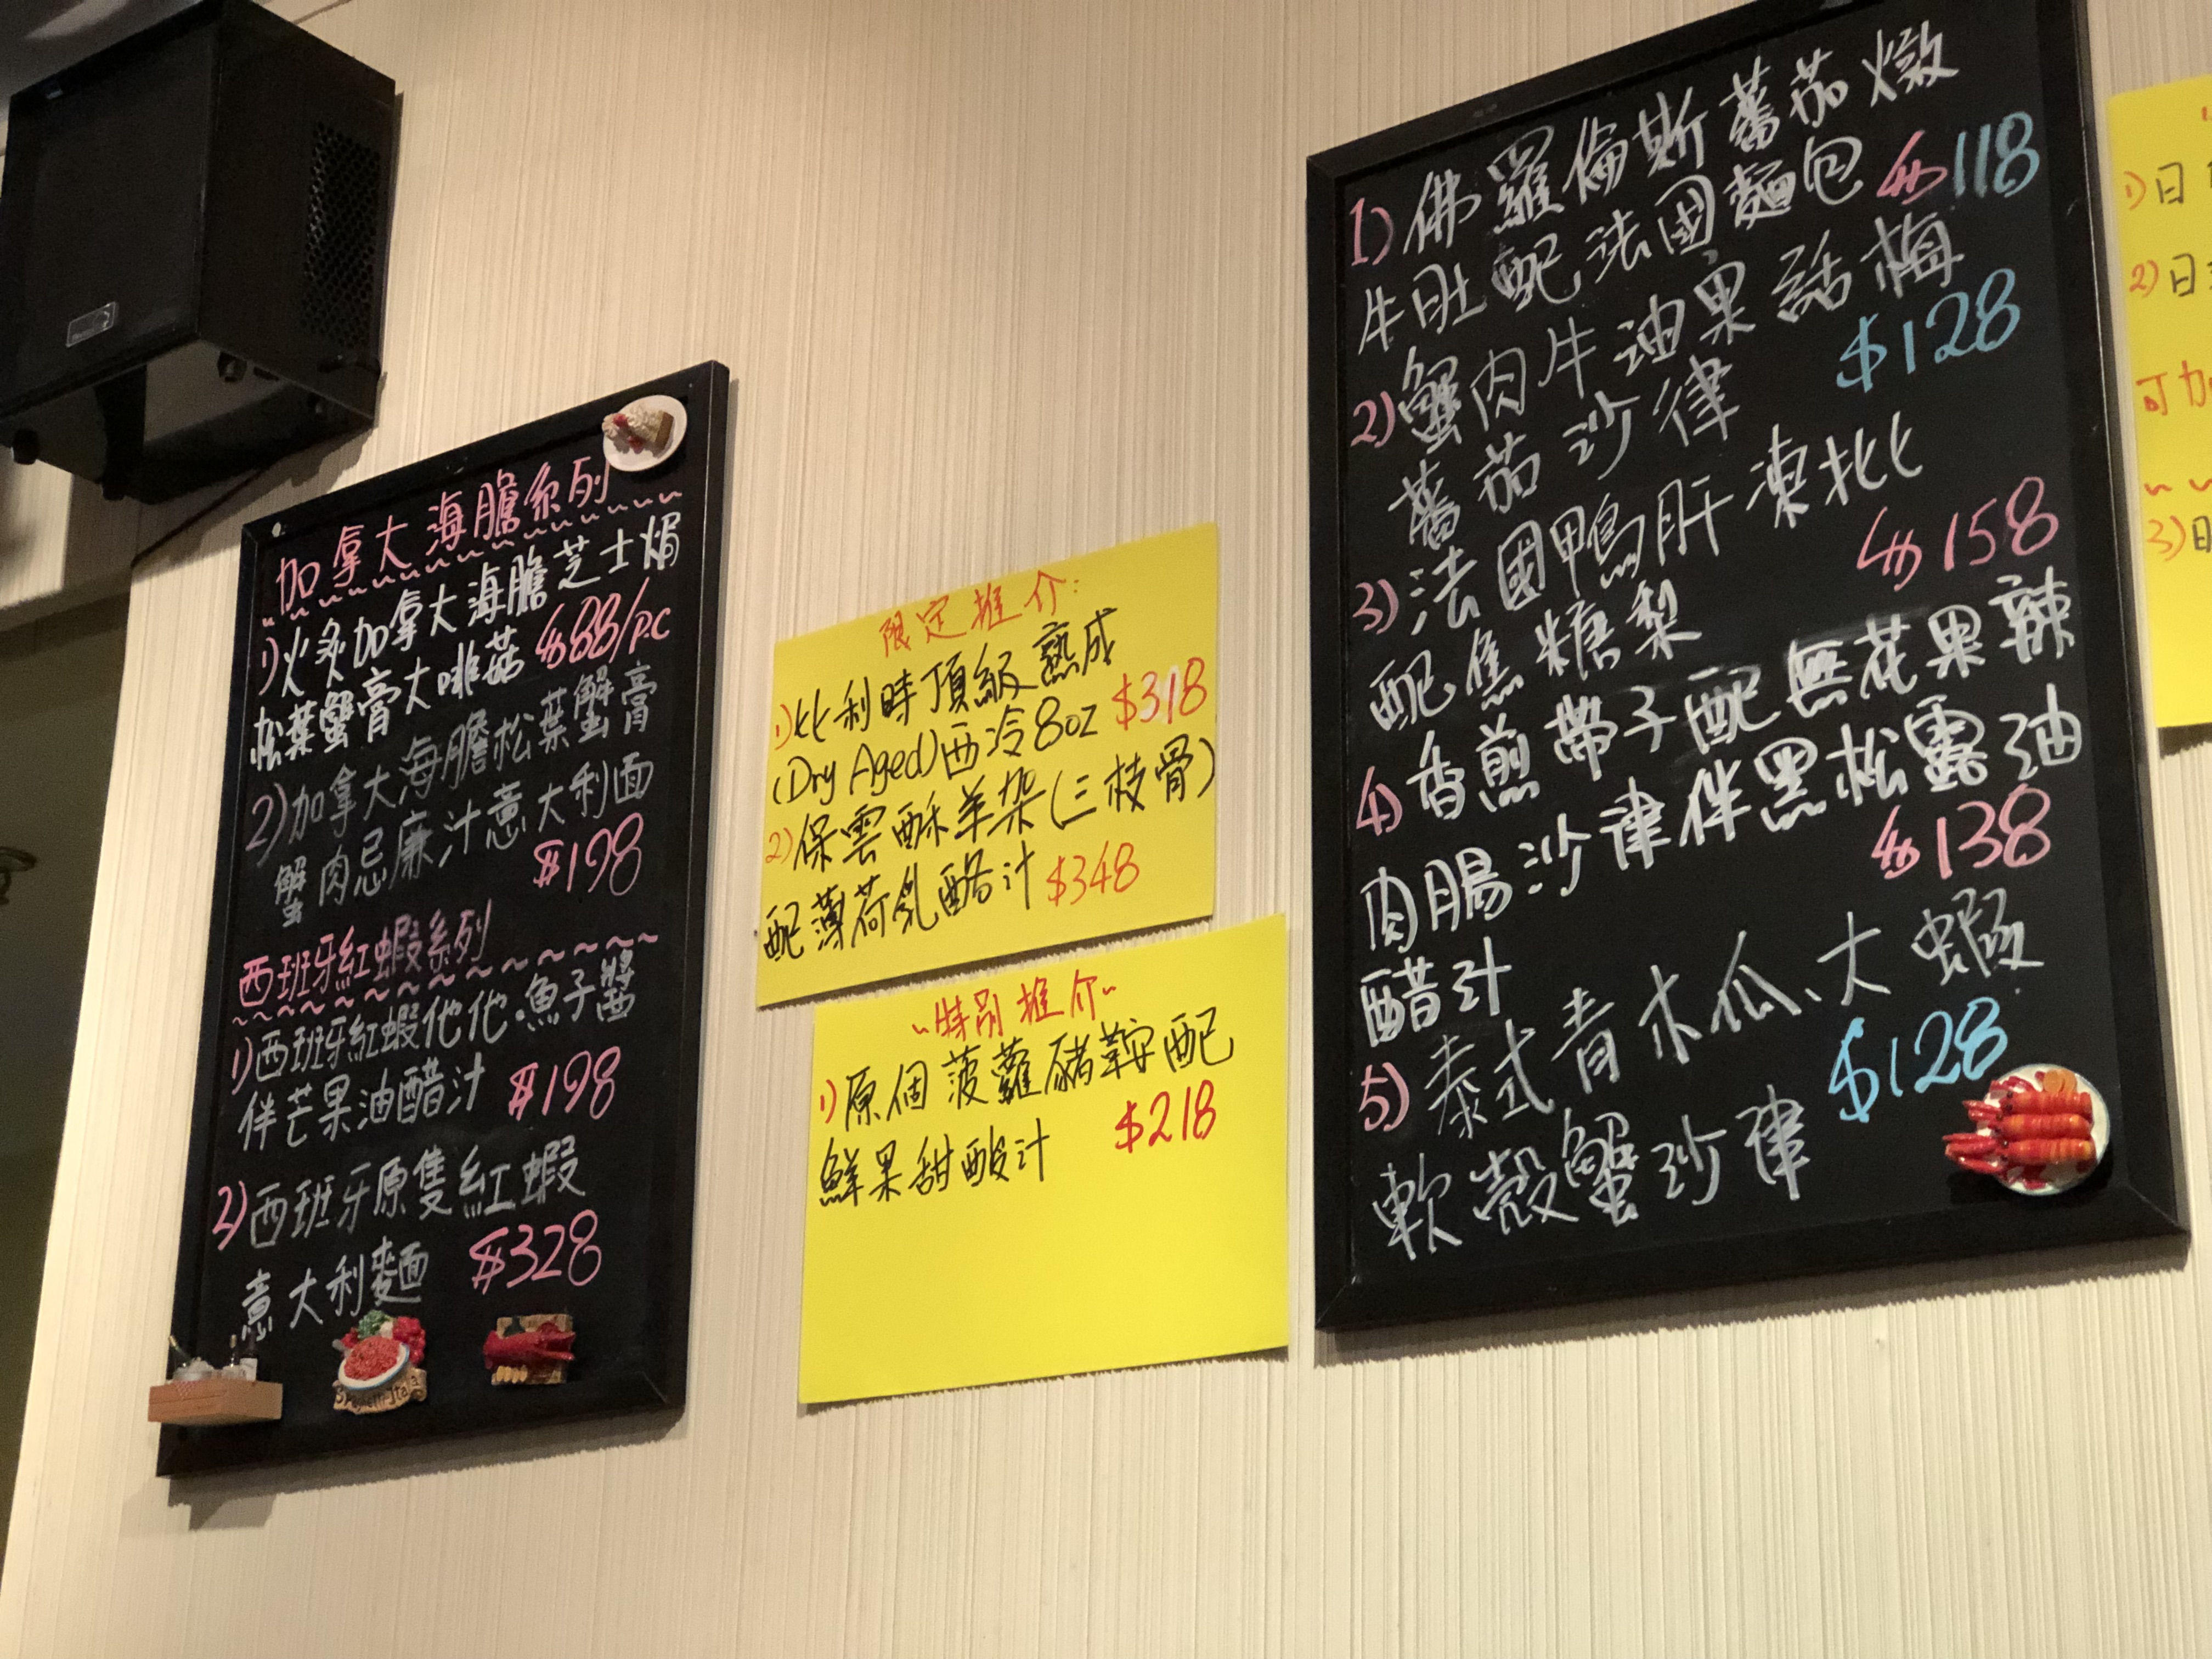 加拿大海膽系列
1)火炙加拿大海膽芝士焗
松葉蟹膏大啡菇 $88/p.c
2)加拿大海膽松葉蟹膏
蟹肉忌廉汁意大利面
$198
西班牙紅蝦系列
1)西班牙紅蝦他他·魚子醬
伴芒果油醋汁 $198
2)西班牙原隻紅蝦
意大利麵 $328
限定推介:
1)比利時頂級熟成
(Dry Aged)西冷8oz $318
2)保雲酥羊架(三枝骨)
配薄荷乳酪汁 $348
~特别推介~
1)原個菠蘿豬鞍配
鮮果甜酸汁 $218
1)佛羅倫斯蕃茄燉
牛肚配法國麵包 $118
2)蟹肉牛油果話梅
蕃茄沙律 $128
3)法國鴨肝凍批
配焦糖梨 $158
4)香煎帶子配無花果辣
肉腸沙律伴黑松露油
醋汁 $138
5)泰式青木瓜、大蝦
軟殼蟹沙律 $128
1)日
2)日
可加
3)日